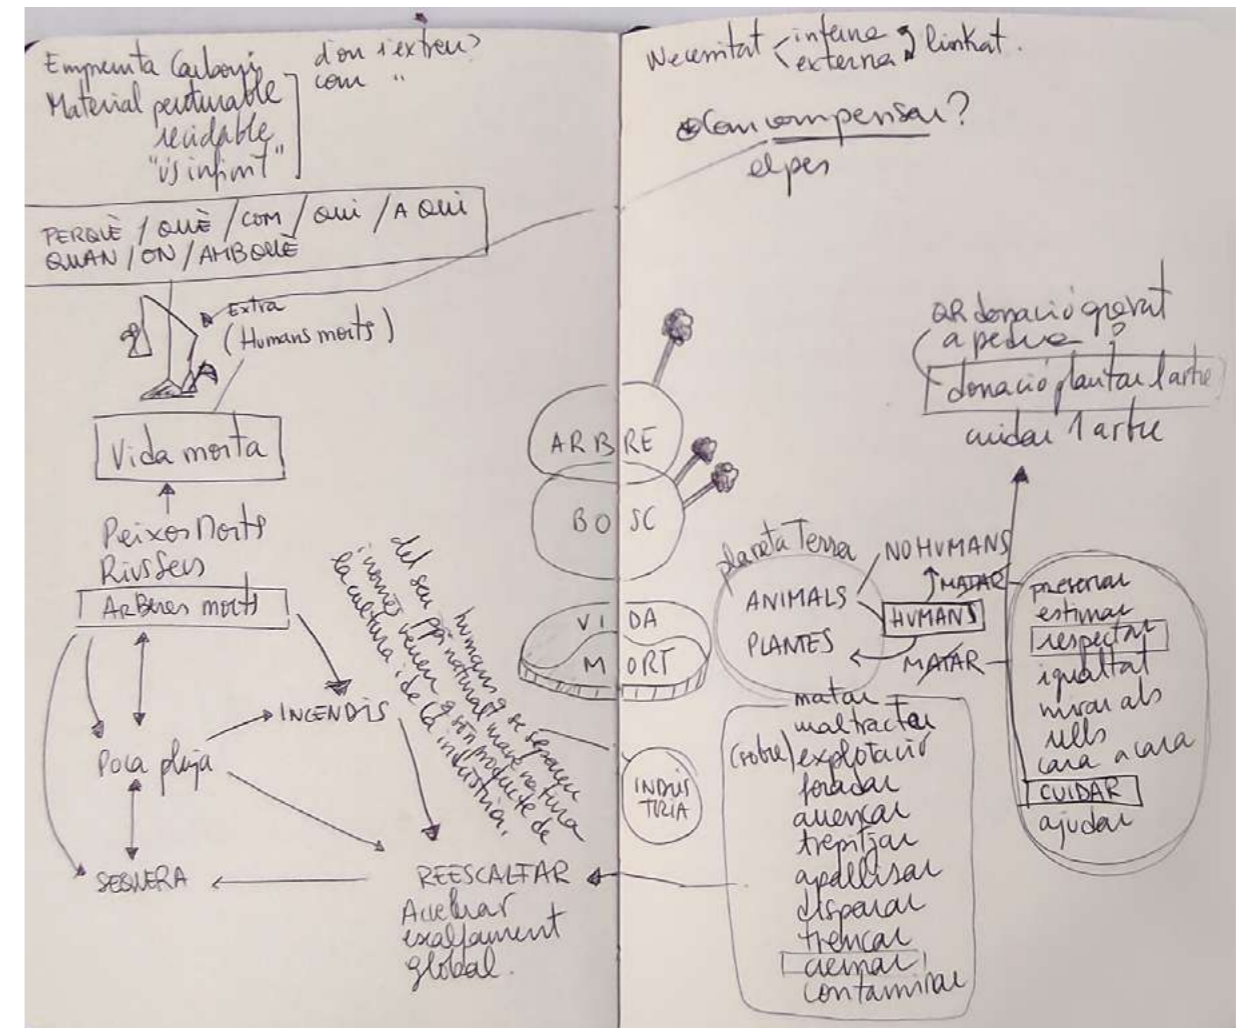 Empremta Carboni
Material perdurable
reciclable
"ús infinit"
d'on s'extreu?
com "
PERQUÈ / QUÈ / COM / QUI / A QUI
QUAN / ON / AMBQUÈ
Extra
(Humans morts)
Vida morta
Peixos Morts
Rius Secs
ARBRES morts
Poca pluja
INCENDIS
SEQUERA
REESCALFAR
Accelerar
escalfament
global.
humans q se separen
del seu ppi natural mare natura
i només venen q són producte de
la cultura i de la indústria.
Necessitat
interna
externa
linkat.
Com compensar?
el pes
ARBRE
BOSC
VIDA
MORT
INDÚS
TRIA
QR donació gravat
a pedra?
donació plantar 1 arbre
cuidar 1 arbre
planeta Terra
ANIMALS
PLANTES
NO HUMANS
MATAR
HUMANS
MATAR
preservar
estimar
respectar
igualtat
mirar als
ulls
cara a cara
CUIDAR
ajudar
matar
maltractar
(sobre) explotació
foradar
arrencar
trepitjar
apallissar
disparar
trencar
cremar
contaminar